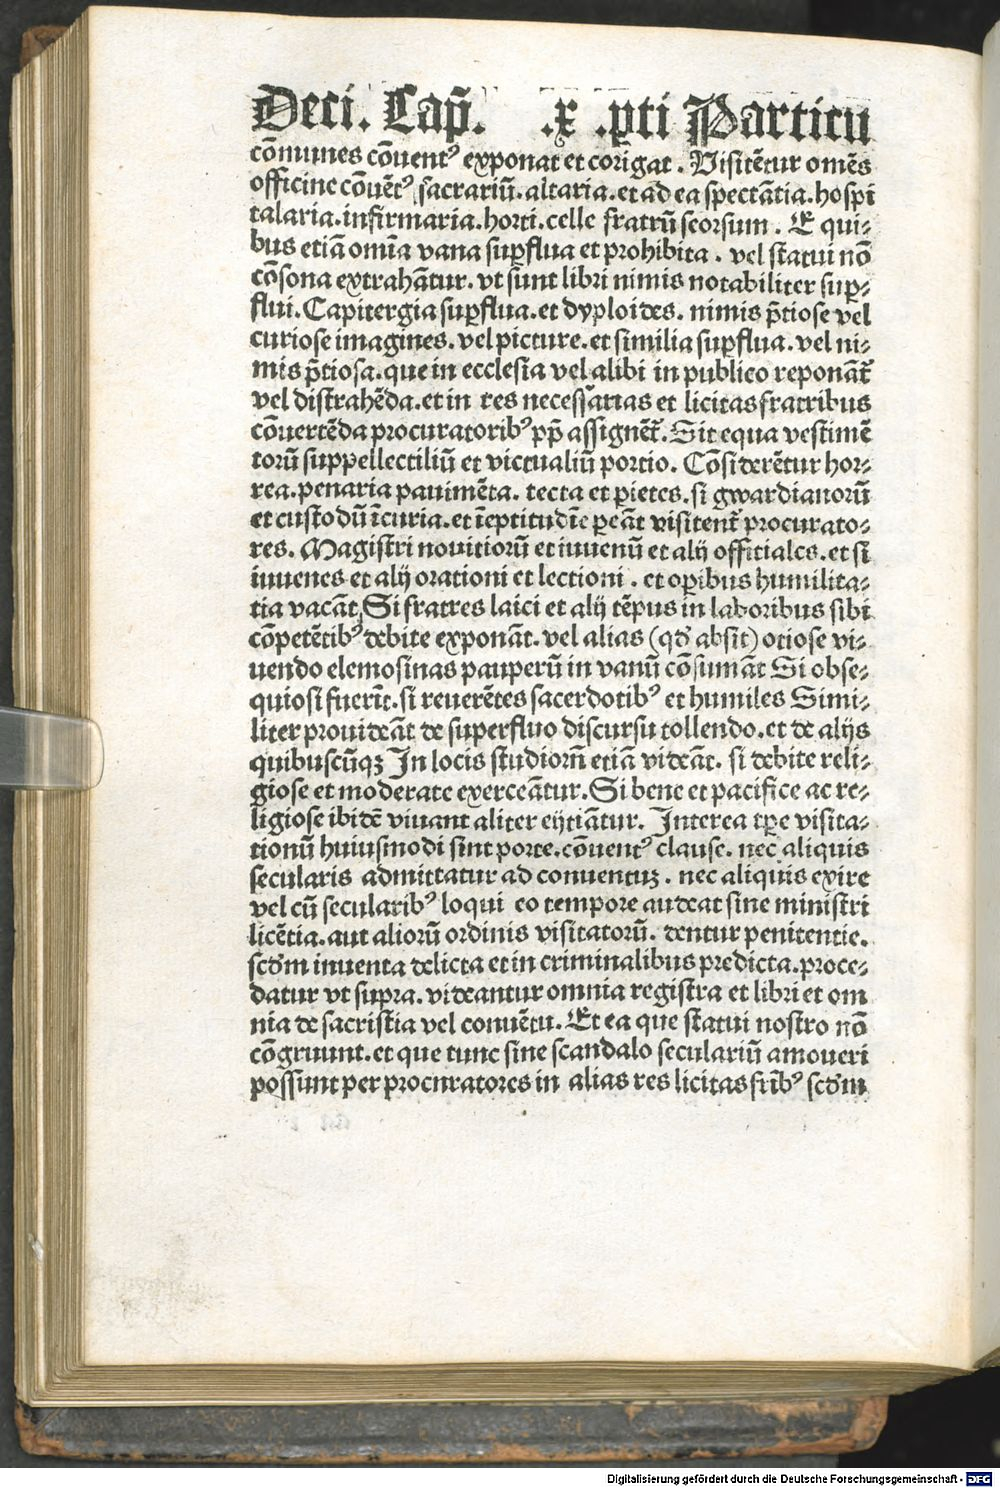 Deci. Cap̄. .x .p̱ti Particu
cōmunes cōuentꝰ exponat et corrigat. Visitētur omēs
officine cōuētꝰ sacrariū. altaria. et ad ea spectātia. hospi
talaria. infirmaria. horti. celle fratrū seorsum. E qui⸗
bus etiā omīa vana suꝑflua et prohibita. vel statui nō
cōsona extrahātur. vt sunt libri nimis notabiliter suꝑ⸗
flui. Capitergia suꝑflua. et dyploides. nimis p̄tiose vel
curiose imagines. vel picture. et similia suꝑflua. vel ni⸗
mis p̄tiosa. que in ecclesia vel alibi in publico reponāt᷑
vel distrahēda. et in res necessarias et licitas fratribus
cōuertēda procuratoribꝰ pp̄ assignēt᷑. Sit equa vestimē
torū suppellectiliū et victualiū portio. Cōsiderētur hor⸗
rea. penaria pauimēta. tecta et ꝑietes. si gwardianorū
et custodū īcuria. et īeptitudīe ꝑeāt visitent᷑ procurato⸗
res. Magistri nouitiorū et iuuenū et alij officiales. et si
iuuenes et alij orationi et lectioni. et oꝑibus humilita⸗
tia vacāt Si fratres laici et alij tēpus in laboribus sibi
cōpetētibꝰ debite exponāt. vel alias (qđ absit) otiose vi⸗
uendo elemosinas pauperū in vanū cōsumāt Si obse⸗
quiosi fuerīt. si reuerētes sacerdotibꝰ et humiles Simi⸗
liter prouideāt de superfluo discursu tollendo. et de alijs
quibuscūqꝫ In locis studiorū etiā videāt. si debite reli⸗
giose et moderate exerceātur. Si bene et pacifice ac re⸗
ligiose ibidē viuant aliter eijtiātur. Interea tꝑe visita⸗
tionū huiusmodi sint porte. cōuentꝰ clause. nec aliquis
secularis admittatur ad conuentuꝫ. nec aliquis exire
vel cū secularibꝰ loqui eo tempore audeat sine ministri
licētia. aut aliorū ordinis visitatorū. dentur penitentie.
scđm inuenta delicta et in criminalibus predicta. proce⸗
datur vt supra. videantur omnia registra et libri et om
nia de sacristia vel conuētu. Et ea que statui nostro nō
cōgruunt. et que tunc sine scandalo seculariū amoueri
possunt per procuratores in alias res licitas frībꝰ scđm
Digitalisierung gefördert durch die Deutsche Forschungsgemeinschaft - DFG